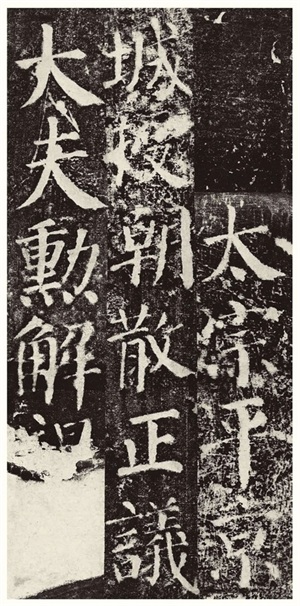 太宗平京
城授朝散正議
大夫勳解